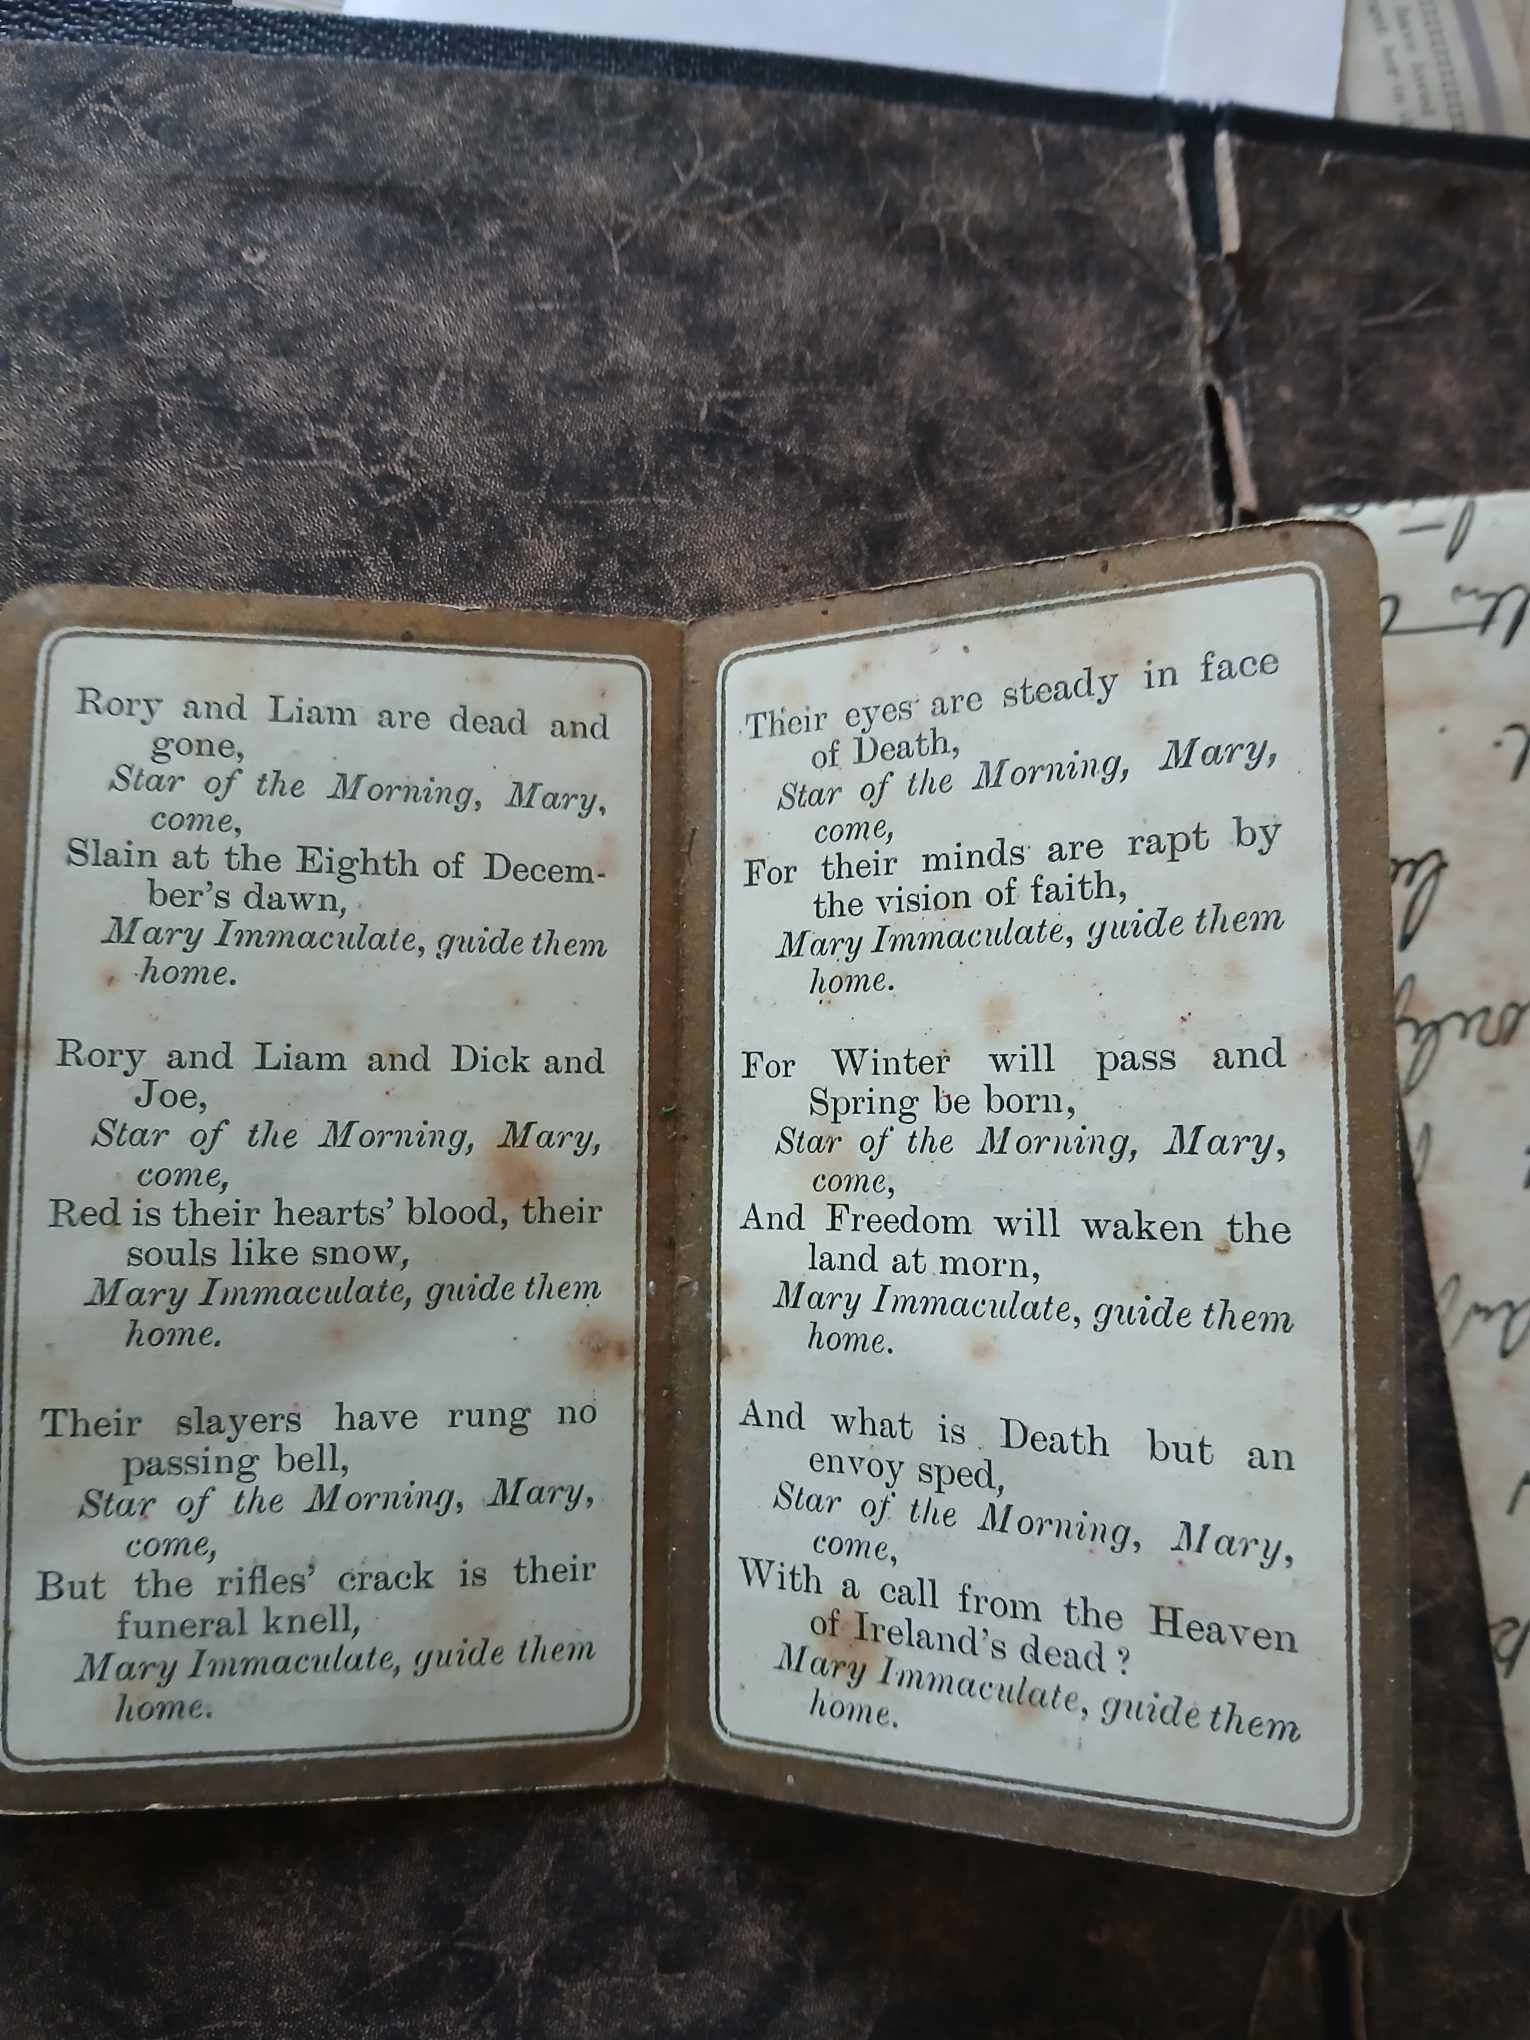 Rory and Liam are dead and
gone,
Star of the Morning, Mary,
come,
Slain at the Eighth of Decem-
ber's dawn,
Mary Immaculate, guide them
home.
Rory and Liam and Dick and
Joe,
Star of the Morning, Mary,
come,
Red is their hearts' blood, their
souls like snow,
Mary Immaculate, guide them
home.
Their slayers have rung no
passing bell,
Star of the Morning, Mary,
come,
But the rifles' crack is their
funeral knell,
Mary Immaculate, guide them
home.
Their eyes are steady in face
of Death,
Star of the Morning, Mary,
come,
For their minds are rapt by
the vision of faith,
Mary Immaculate, guide them
home.
For Winter will pass and
Spring be born,
Star of the Morning, Mary,
come,
And Freedom will waken the
land at morn,
Mary Immaculate, guide them
home.
And what is Death but an
envoy sped,
Star of the Morning, Mary,
come,
With a call from the Heaven
of Ireland's dead?
Mary Immaculate, guide them
home.